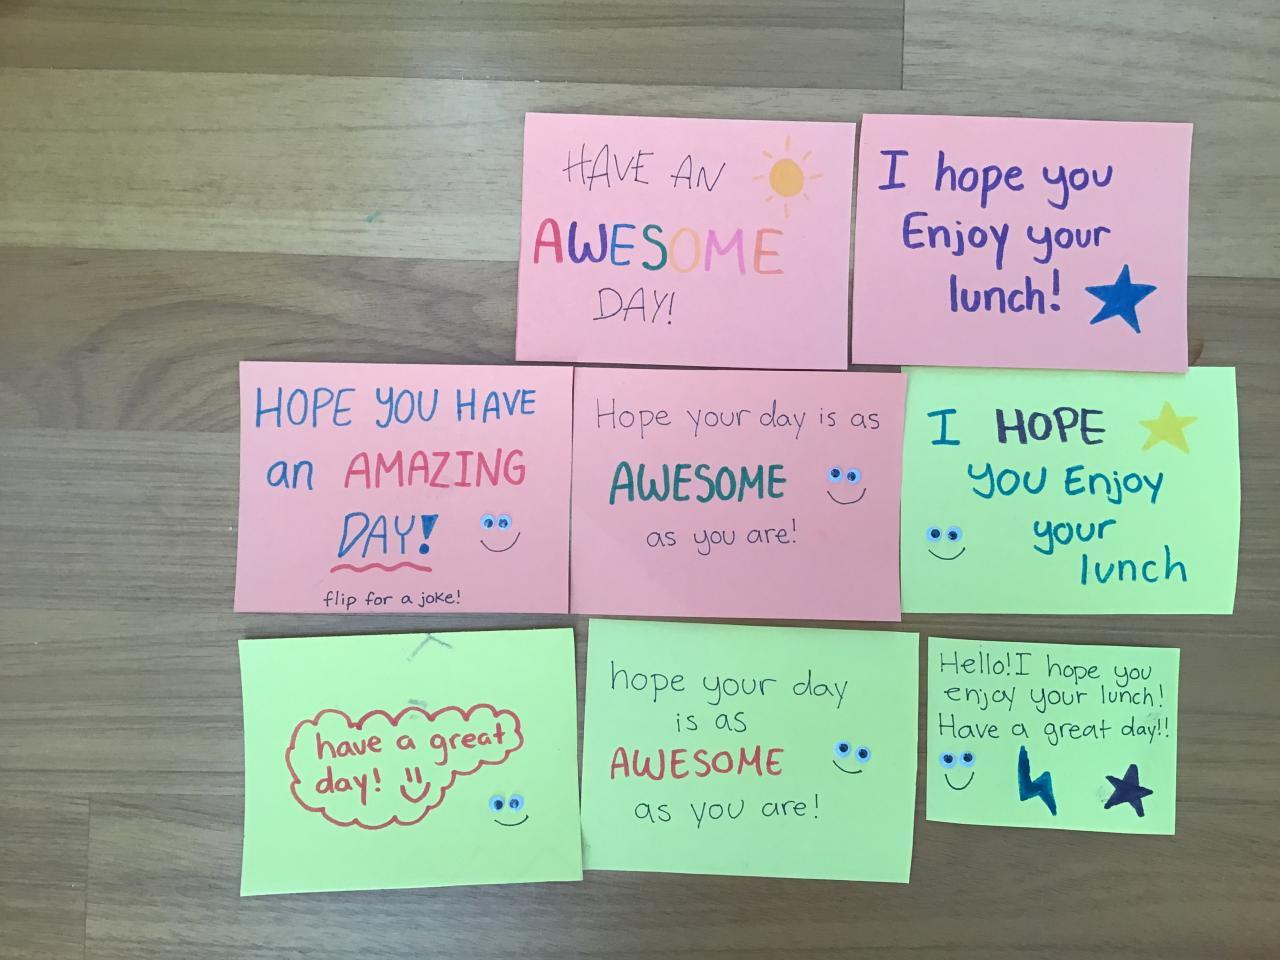 HAVE AN
AWESOME
DAY!
I hope you
Enjoy your
lunch!
HOPE YOU HAVE
an AMAZING
DAY!
flip for a joke!
Hope your day is as
AWESOME
as you are!
I HOPE
you Enjoy
your
lunch
have a great
day!
hope your day
is as
AWESOME
as you are!
Hello! I hope you
enjoy your lunch!
Have a great day!!